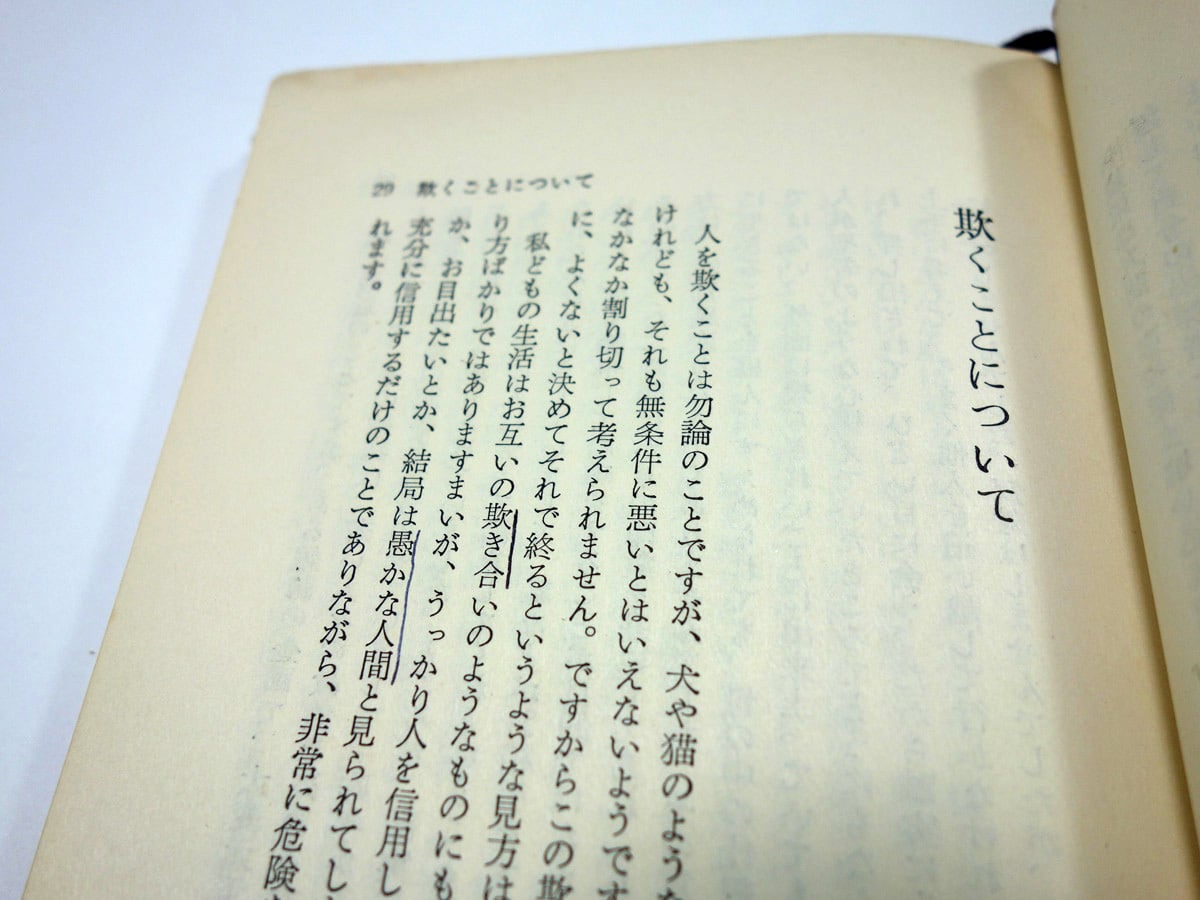 欺くことについて
29 欺くことについて
人を欺くことは勿論のことですが、犬や猫のような
けれども、それも無条件に悪いとはいえないようです
なかなか割り切って考えられません。ですからこの欺
に、よくないと決めてそれで終るというような見方は
私どもの生活はお互いの欺き合いのようなものにも
り方ばかりではありますまいが、うっかり人を信用し
か、お目出たいとか、結局は愚かな人間と見られてし
充分に信用するだけのことでありながら、非常に危険
れます。